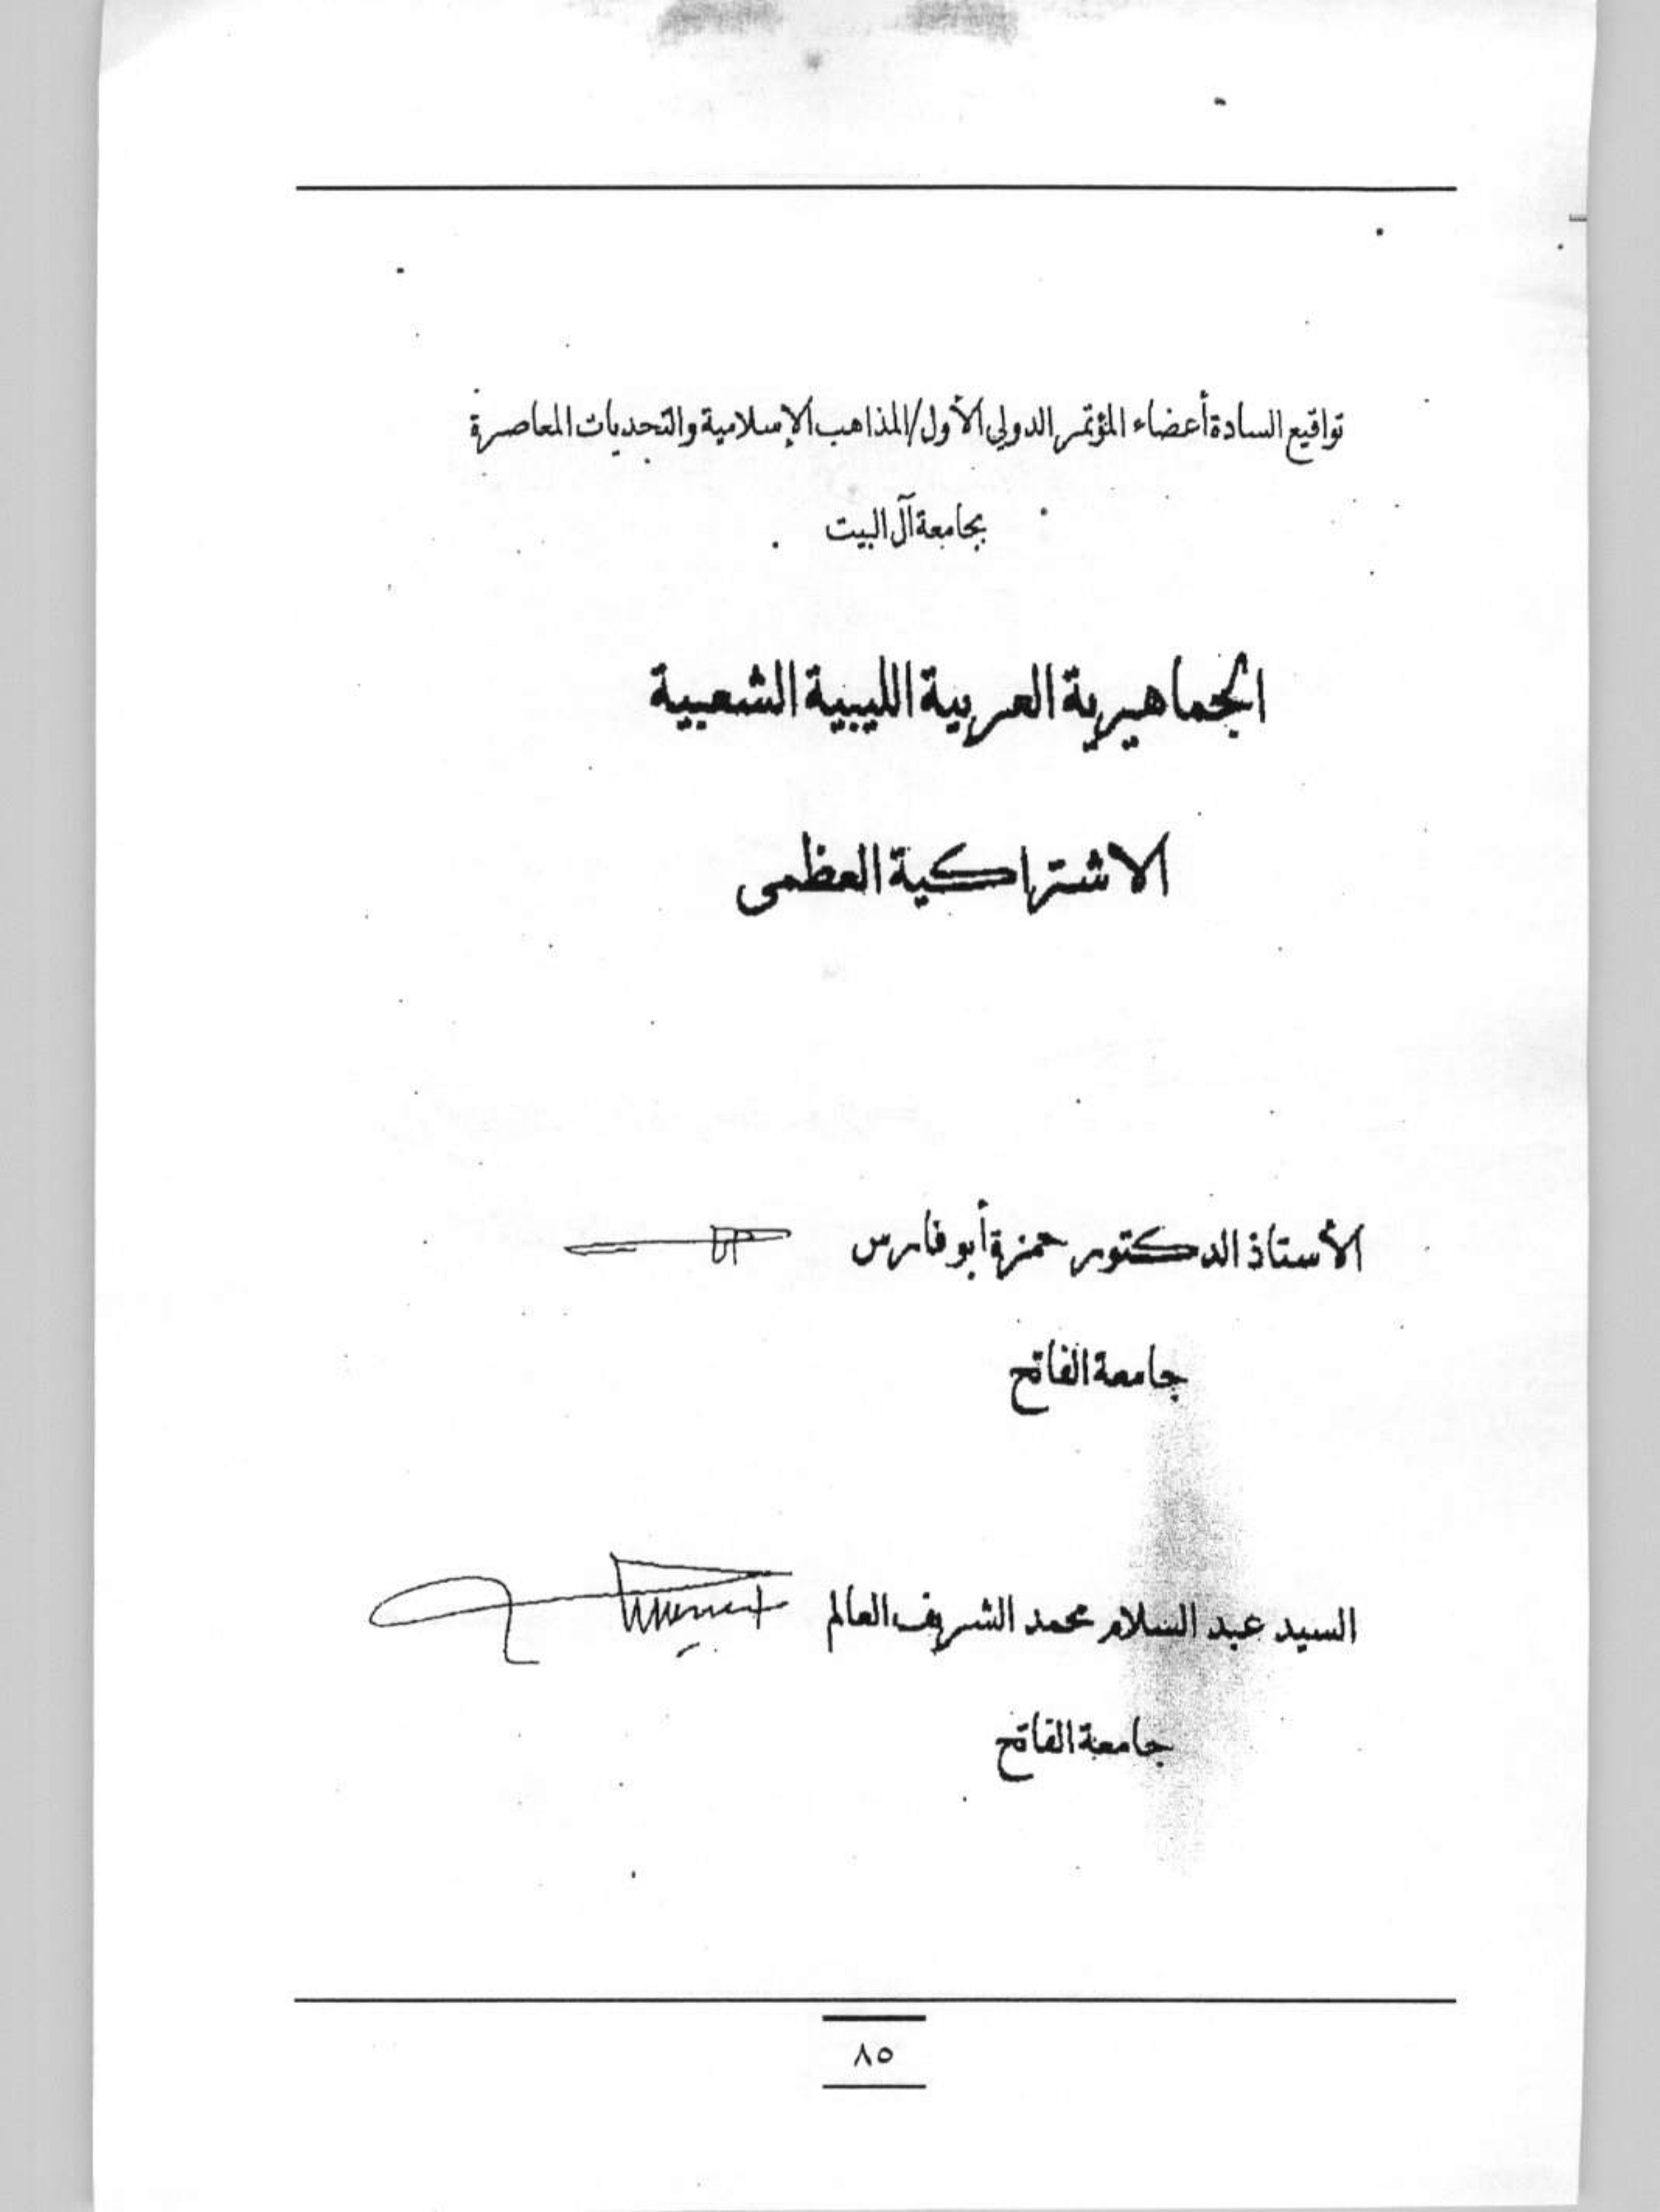 تواقيع السادة أعضاء المؤتمر الدولي الأول/المذاهب الإسلامية والتحديات المعاصرة
بجامعة آل البيت
الجماهيرية العربية الليبية الشعبية
الاشتراكية العظمى
الأستاذ الدكتور حمزة أبو فارس
جامعة الفاتح
السيد عبد السلام محمد الشريف العالم
جامعة الفاتح
٨٥